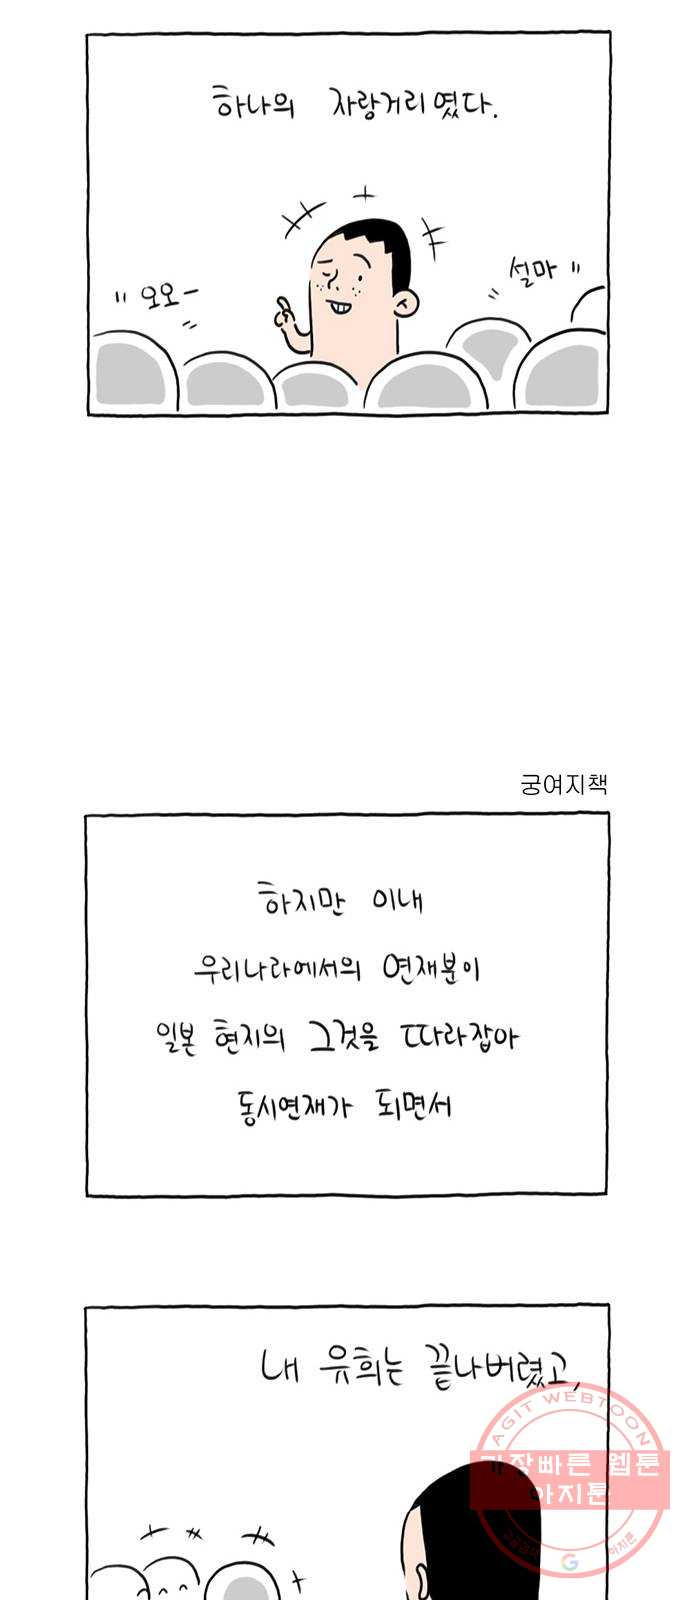 하나의 자랑거리였다.
"오오-
설마"
궁여지책
하지만 이내
우리나라에서의 연재분이
일본 현지의 그것을 따라잡아
동시연재가 되면서
내 유희는 끝나버렸고,
AGIT WEBTOON
가장빠른 웹툰
아지툰
아지툰
G